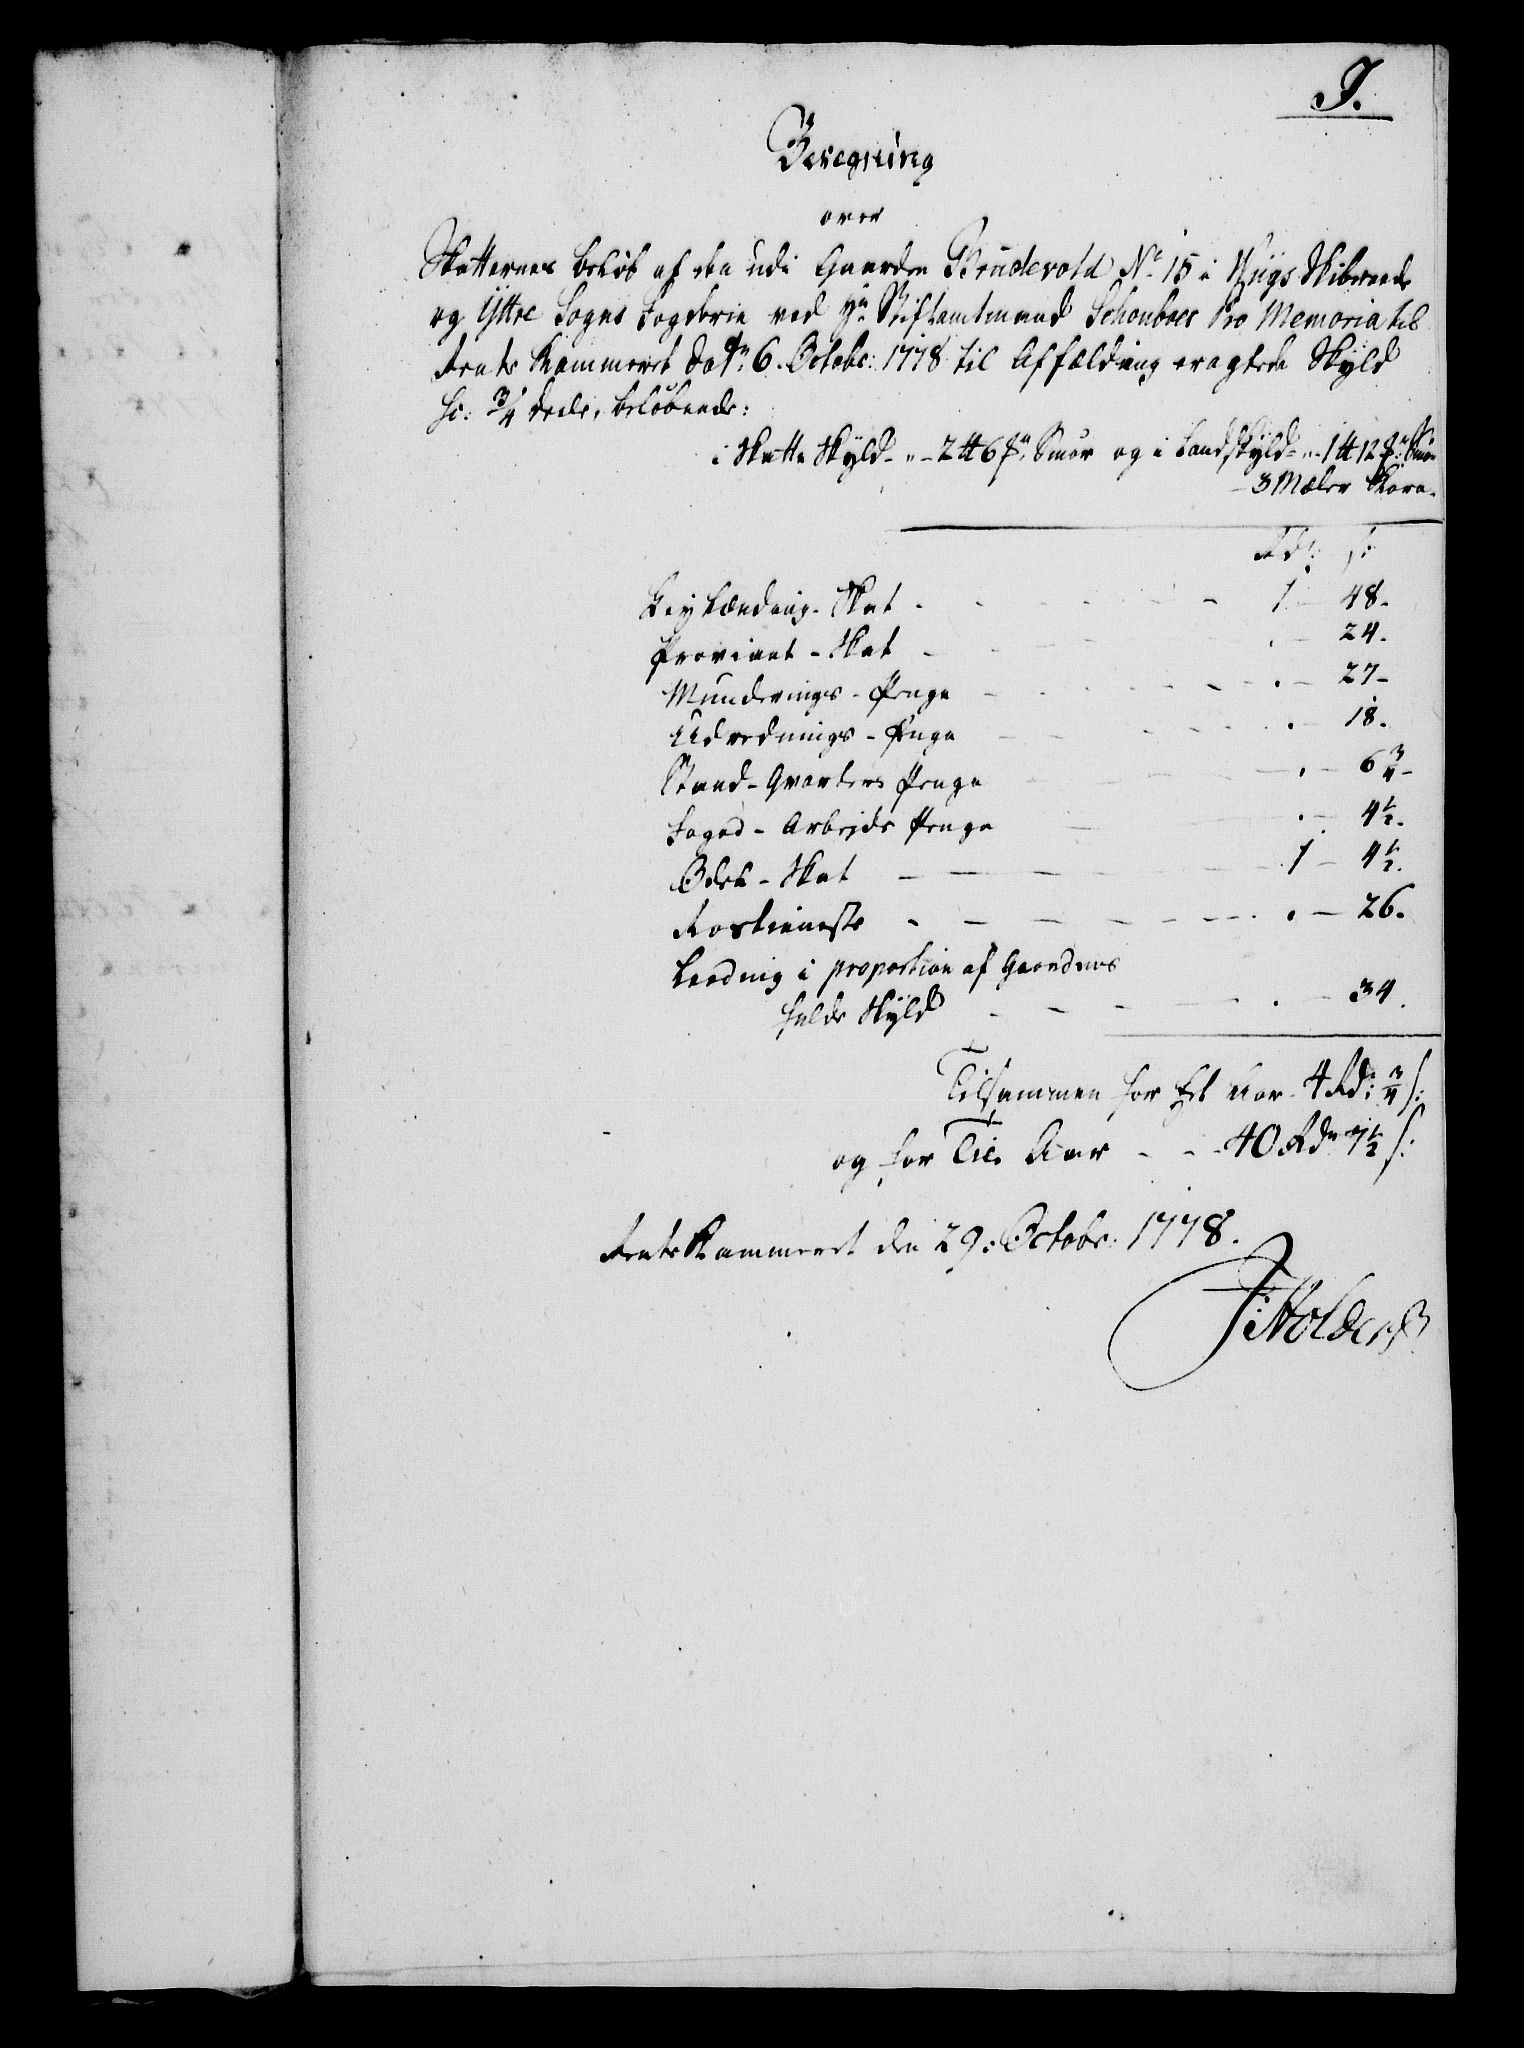 J.
Beregning
over
Skatternes beløb af den udi Gaarden Brudevold No 15 i Kugs Skibreede
og Yttre Sogns Fogderie ved Hr Stiftamtmand Schonboes Pro Memoria til
Rente Kammeret Dat: 6. Octobr: 1778 til Affældning eragtede Skyld
sc: 3/4 deele, beløbende:
i Skatte Skyld - " - 2 ℔ 6 ℳr. Smør og i Landskyld - " - 1 ℔ 12 ℳr: Smør
- 3 Mæler Korn.
Rdr: s:
Leylændings - Skat - - - 1 - 48.
Proviant - Skat - - - . - 24.
Munderings - Penge - - - . - 27 -
Udrednings - Penge - - - . - 18.
Stand - Qvarteers Penge - - - . - 6 3/4 -
Foged - Arbejds Penge - - - . - 4 1/2.
Odels - Skat - - - 1 - 4 1/2.
Rostieneste - - - . - 26.
Leeding i proportion af Gaardens
fulde Skyld - - - . - 34.
Tilsammen for Et Aar - 4 Rd: 3/4 s:
og for Tie Aar - - - 40 Rdr 7 1/2 s:
Rente Kammeret den 29: Octobr: 1778.